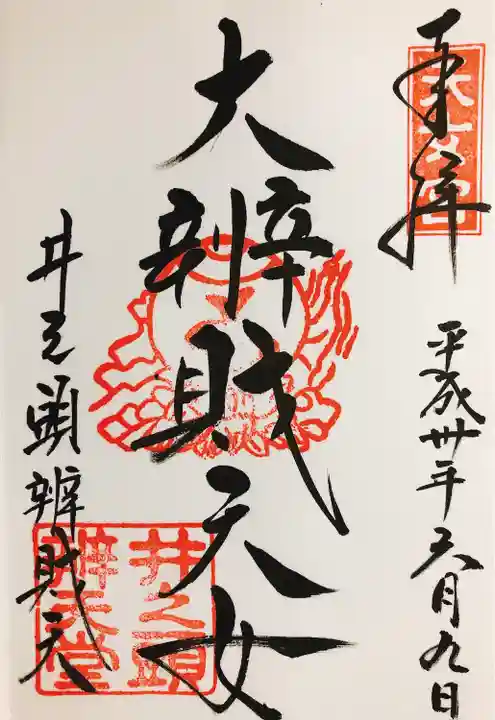 奉拝
平成卅年五月九日
大辨財天女
井之頭辨財天
井之頭
辨天堂